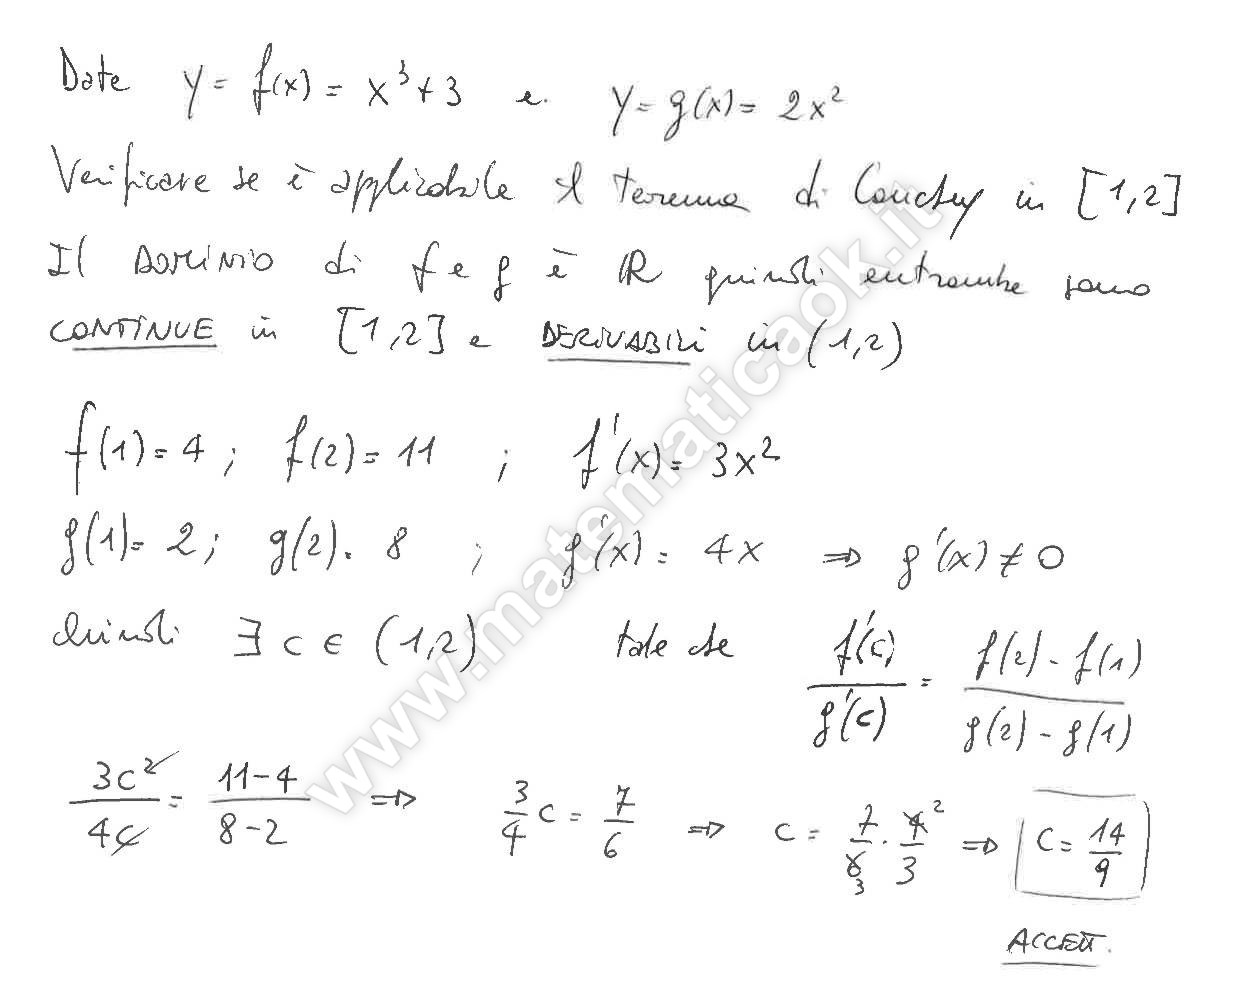 Date y = f(x) = x³+3 e y = g(x) = 2x²
Verificare se è applicabile il teorema di Cauchy in [1,2]
Il DOMINIO di f e g è ℝ quindi entrambe sono
CONTINUE in [1,2] e DERIVABILI in (1,2)
f(1) = 4 ; f(2) = 11 ; f'(x) = 3x²
g(1) = 2 ; g(2) = 8 ; g'(x) = 4x ⇒ g'(x) ≠ 0
Quindi ∃ c ∈ (1,2) tale che f'(c)/g'(c) = (f(2) - f(1))/(g(2) - g(1))
3c²/4c = (11-4)/(8-2) ⇒ 3/4 c = 7/6 ⇒ c = 7/6 3 · 4 2/3 ⇒ c = 14/9
ACCETT.
www.matematicaok.it